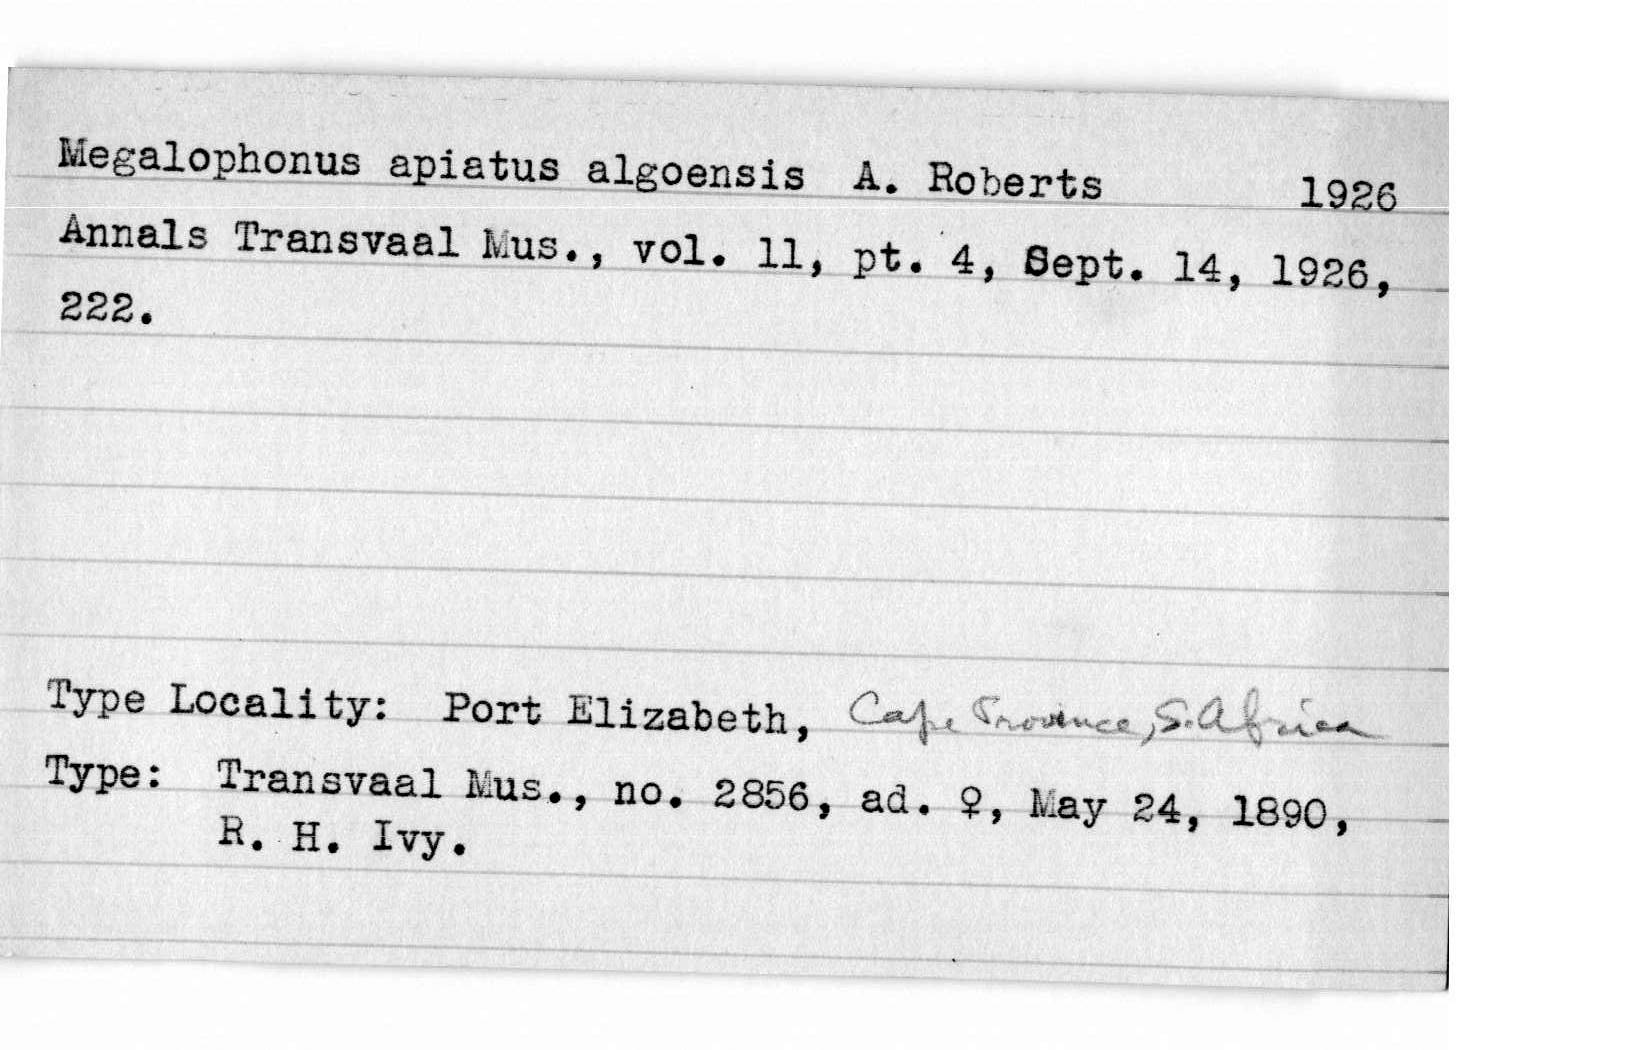 Megalophonus apiatus algoensis A. Roberts 1926
Annals Transvaal Mus., vol. 11, pt. 4, Sept. 14, 1926,
222.
Type Locality: Port Elizabeth, Cape Province, S. Africa
Type: Transvaal Mus., no. 2856, ad. ♀, May 24, 1890,
R. H. Ivy.